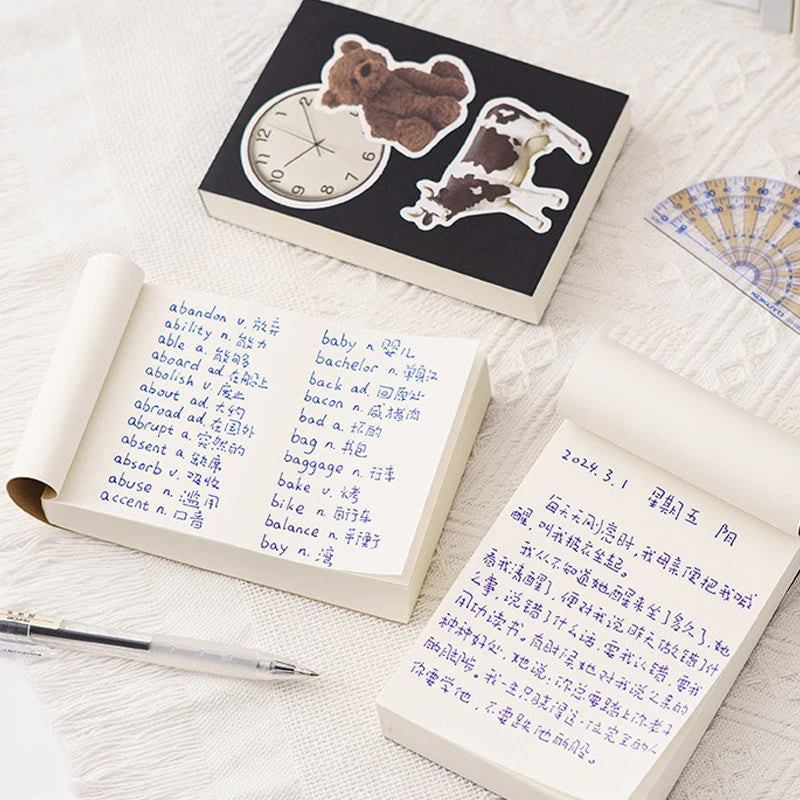 abandon v. 放弃
ability n. 能力
able a. 能够
aboard ad. 在船上
abolish v. 废止
about ad. 大约
abroad ad. 在国外
abrupt a. 突然的
absent a. 缺席
absorb v. 吸收
abuse n. 滥用
accent n. 口音
baby n. 婴儿
bachelor n. 单身汉
back ad. 回原处
bacon n. 咸猪肉
bad a. 坏的
bag n. 书包
baggage n. 行李
bake v. 烤
bike n. 自行车
balance n. 平衡
bay n. 湾
2024.3.1 星期五 阴
每天天刚亮时，我母亲便把我喊
醒，叫我披衣坐起。
我从不知道她醒来坐了多久了，她
看我清醒了，便对我说昨天做错了什
么事，说错了什么话，要我认错，要我
用功读书。有时候她对我说父亲的
种种好处，她说，你总要踏上你老子
的脚步。我一生只晓得这一位完全的人
你要学他，不要跌他的股。